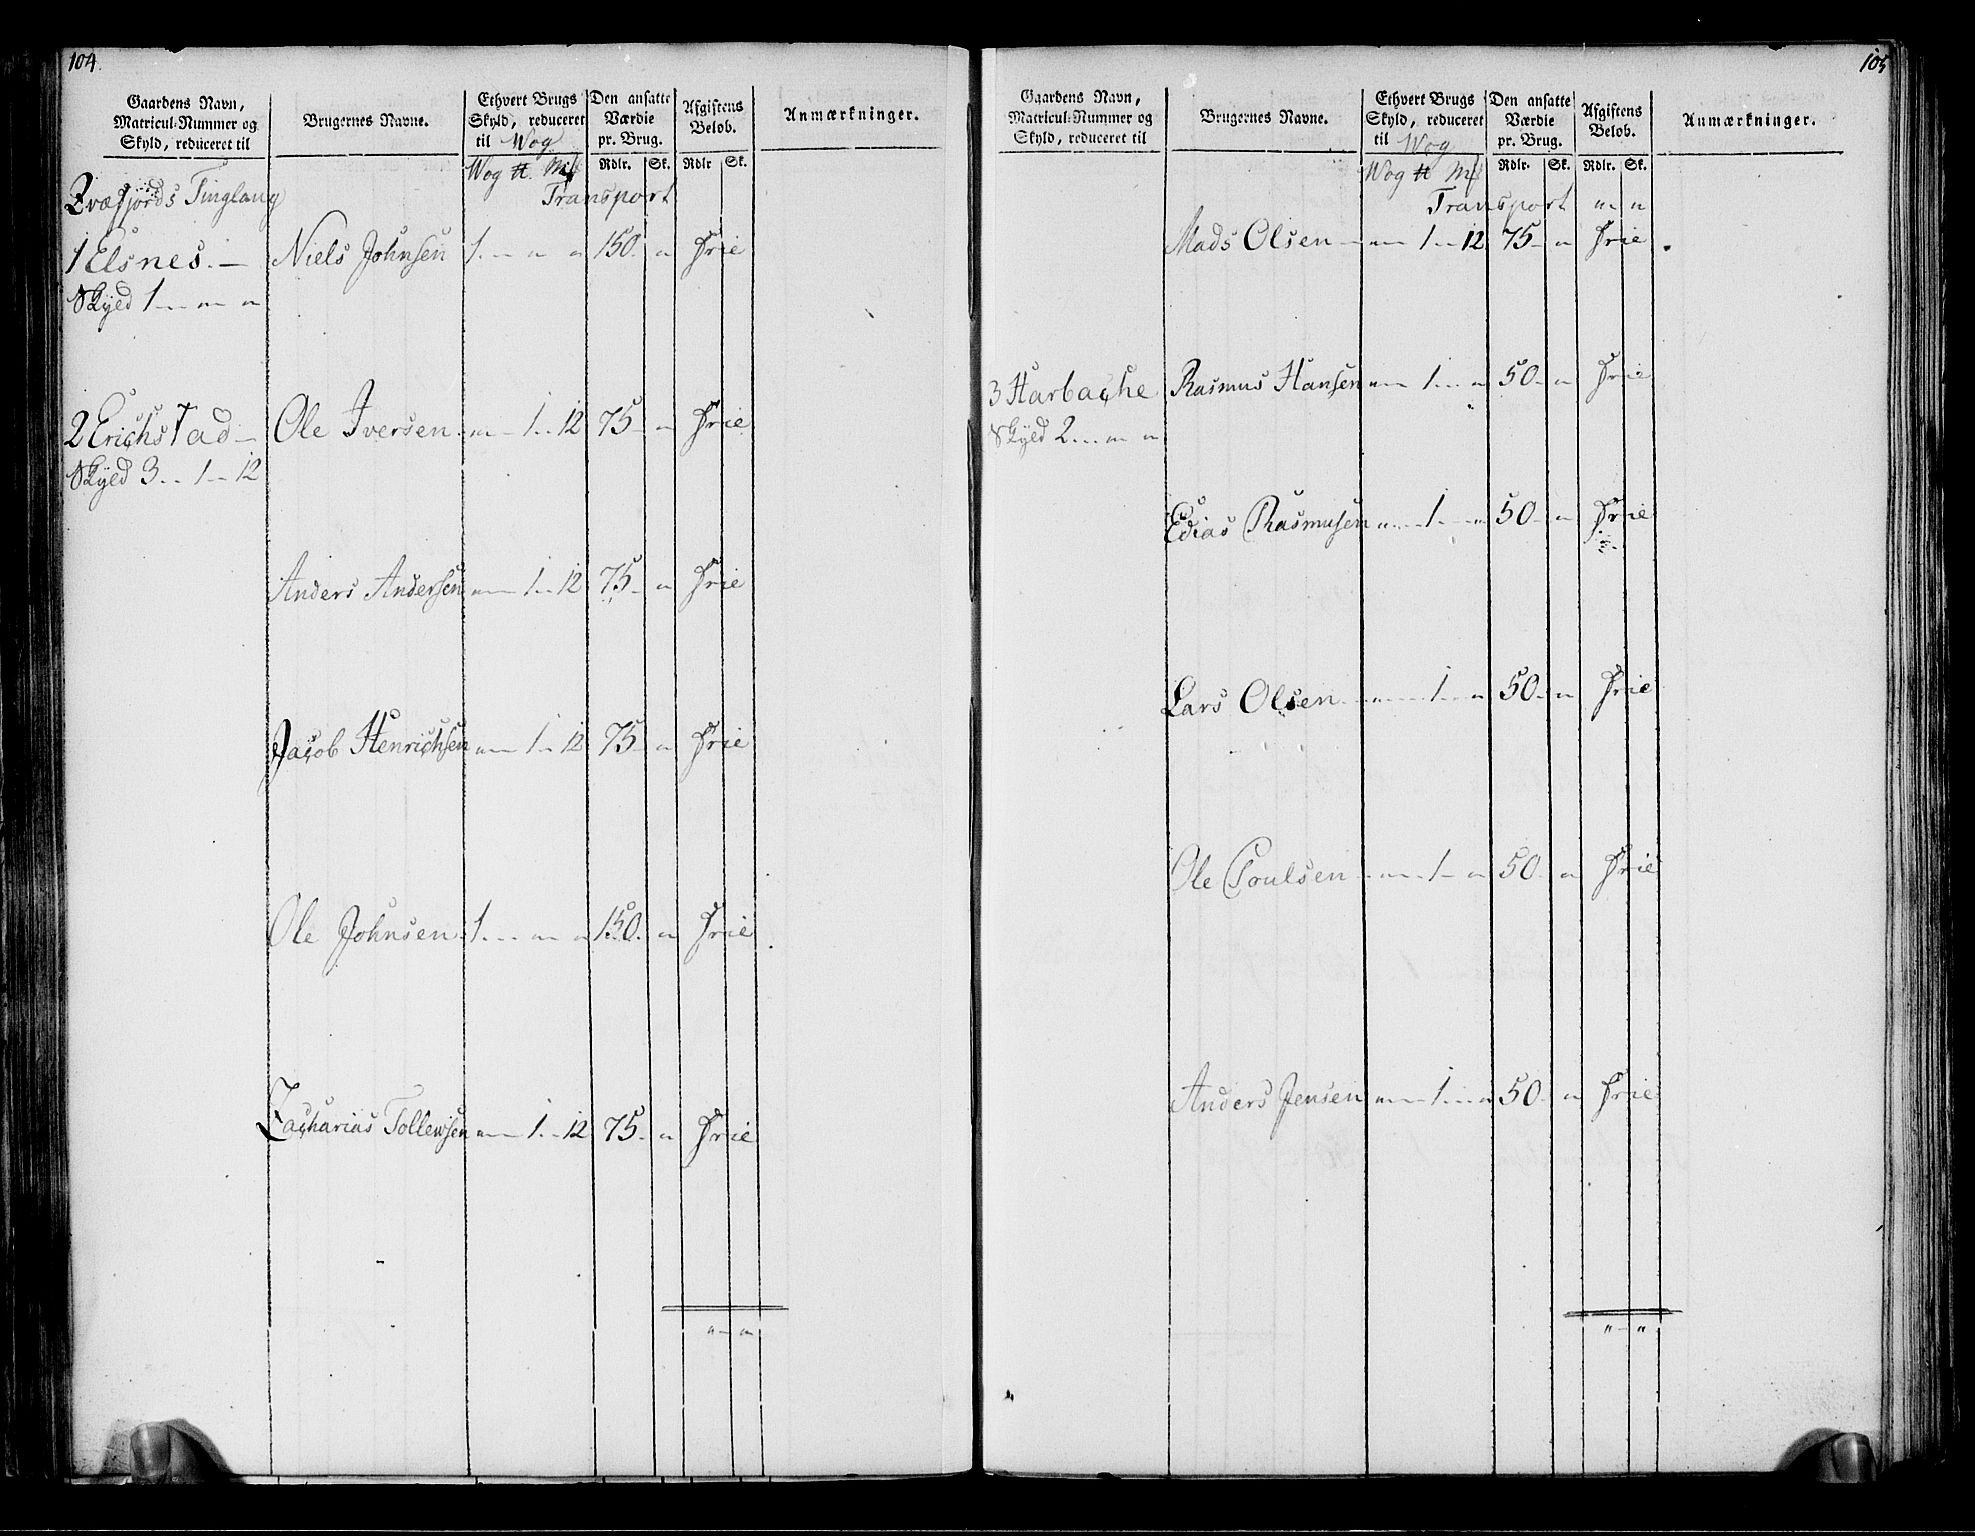 104.
Gaardens Navn, Matricul-Nummer og Skyld, reduceret til
Brugernes Navne.
Ethvert Brugs Skyld, reduceret til Wog
Den ansatte Værdie pr. Brug.
Afgiftens Beløb.
Anmærkninger.
Wog ℔ Mk Rdlr. Sk. Rdlr Sk.
Qvæfjords Tinglaug Transport
1 Elsnes. — Niels Johnsen 1. — „ „ 150. „ Frie
Skyld 1 — „ „
2 Erichstad — Ole Iversen „ — 1 — 12 75 — „ Frie
Skyld 3 — 1 — 12
Anders Andersen „ — 1 — 12 75 — „ Frie
Jacob Henrichsen „ — 1 — 12 75 — „ Frie
Ole Johnsen 1. — „ „ 150. „ Frie
Zacharias Tollewsen „ — 1 — 12 75. „ Frie
„ — „
105
Gaardens Navn, Matricul-Nummer og Skyld, reduceret til
Brugernes Navne.
Ethvert Brugs Skyld, reduceret til Wog
Den ansatte Værdie pr. Brug.
Afgiftens Beløb.
Anmærkninger.
Wog ℔ Mk Rdlr. Sk. Rdlr. Sk.
Transport „ „
Mads Olsen — „ — 1 — 12 75 — „ Frie
3 Harbache Rasmus Hansen „ — 1 — „ 50 — „ Frie
Skyld 2 — „ „
Edias Rasmusen „ — 1 — „ 50 — „ Frie
Lars Olsen — „ — 1 — „ 50 — „ Frie
Ole Poulsen — „ — 1 — „ 50 — „ Frie
Anders Jensen „ — 1 — „ 50 — „ Frie
„ — „